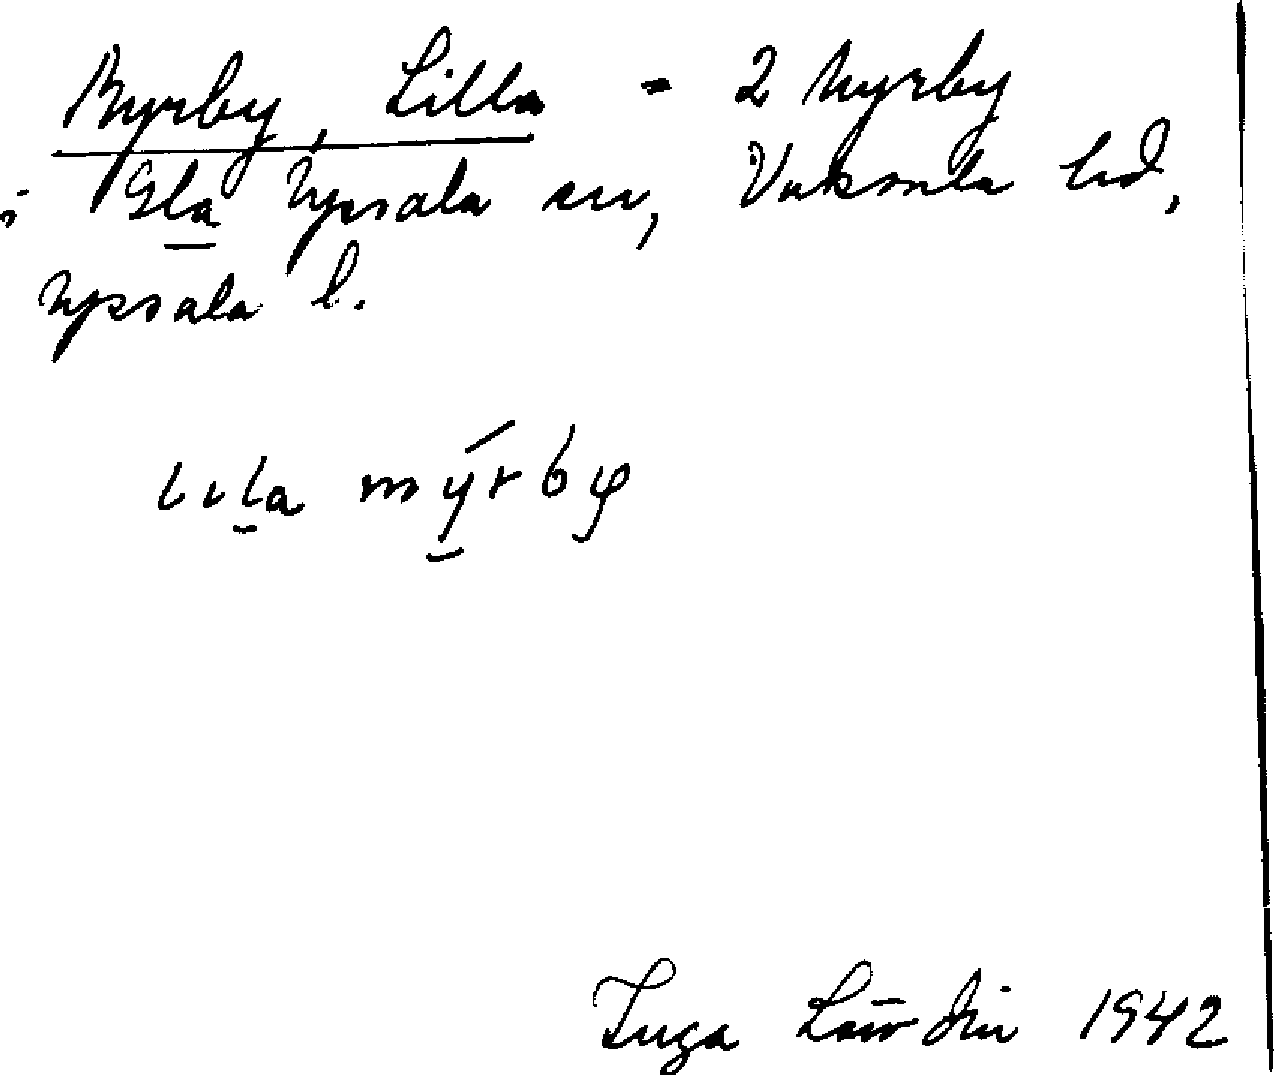 Myrby, Lilla - 2 Myrby
i Gla Upsala sn, Vaksala hd,
Upsala l.
lila myrby
Inga 1942